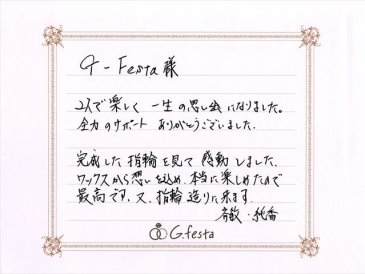 G-Festa 様
2人で楽しく 一生の思い出になりました。
全力のサポート ありがとうございました。
完成した指輪を見て 感動しました。
ワックスから想いを込め、本当に楽しめたので
最高です。又、指輪造りに来ます。
・純香
G.festa